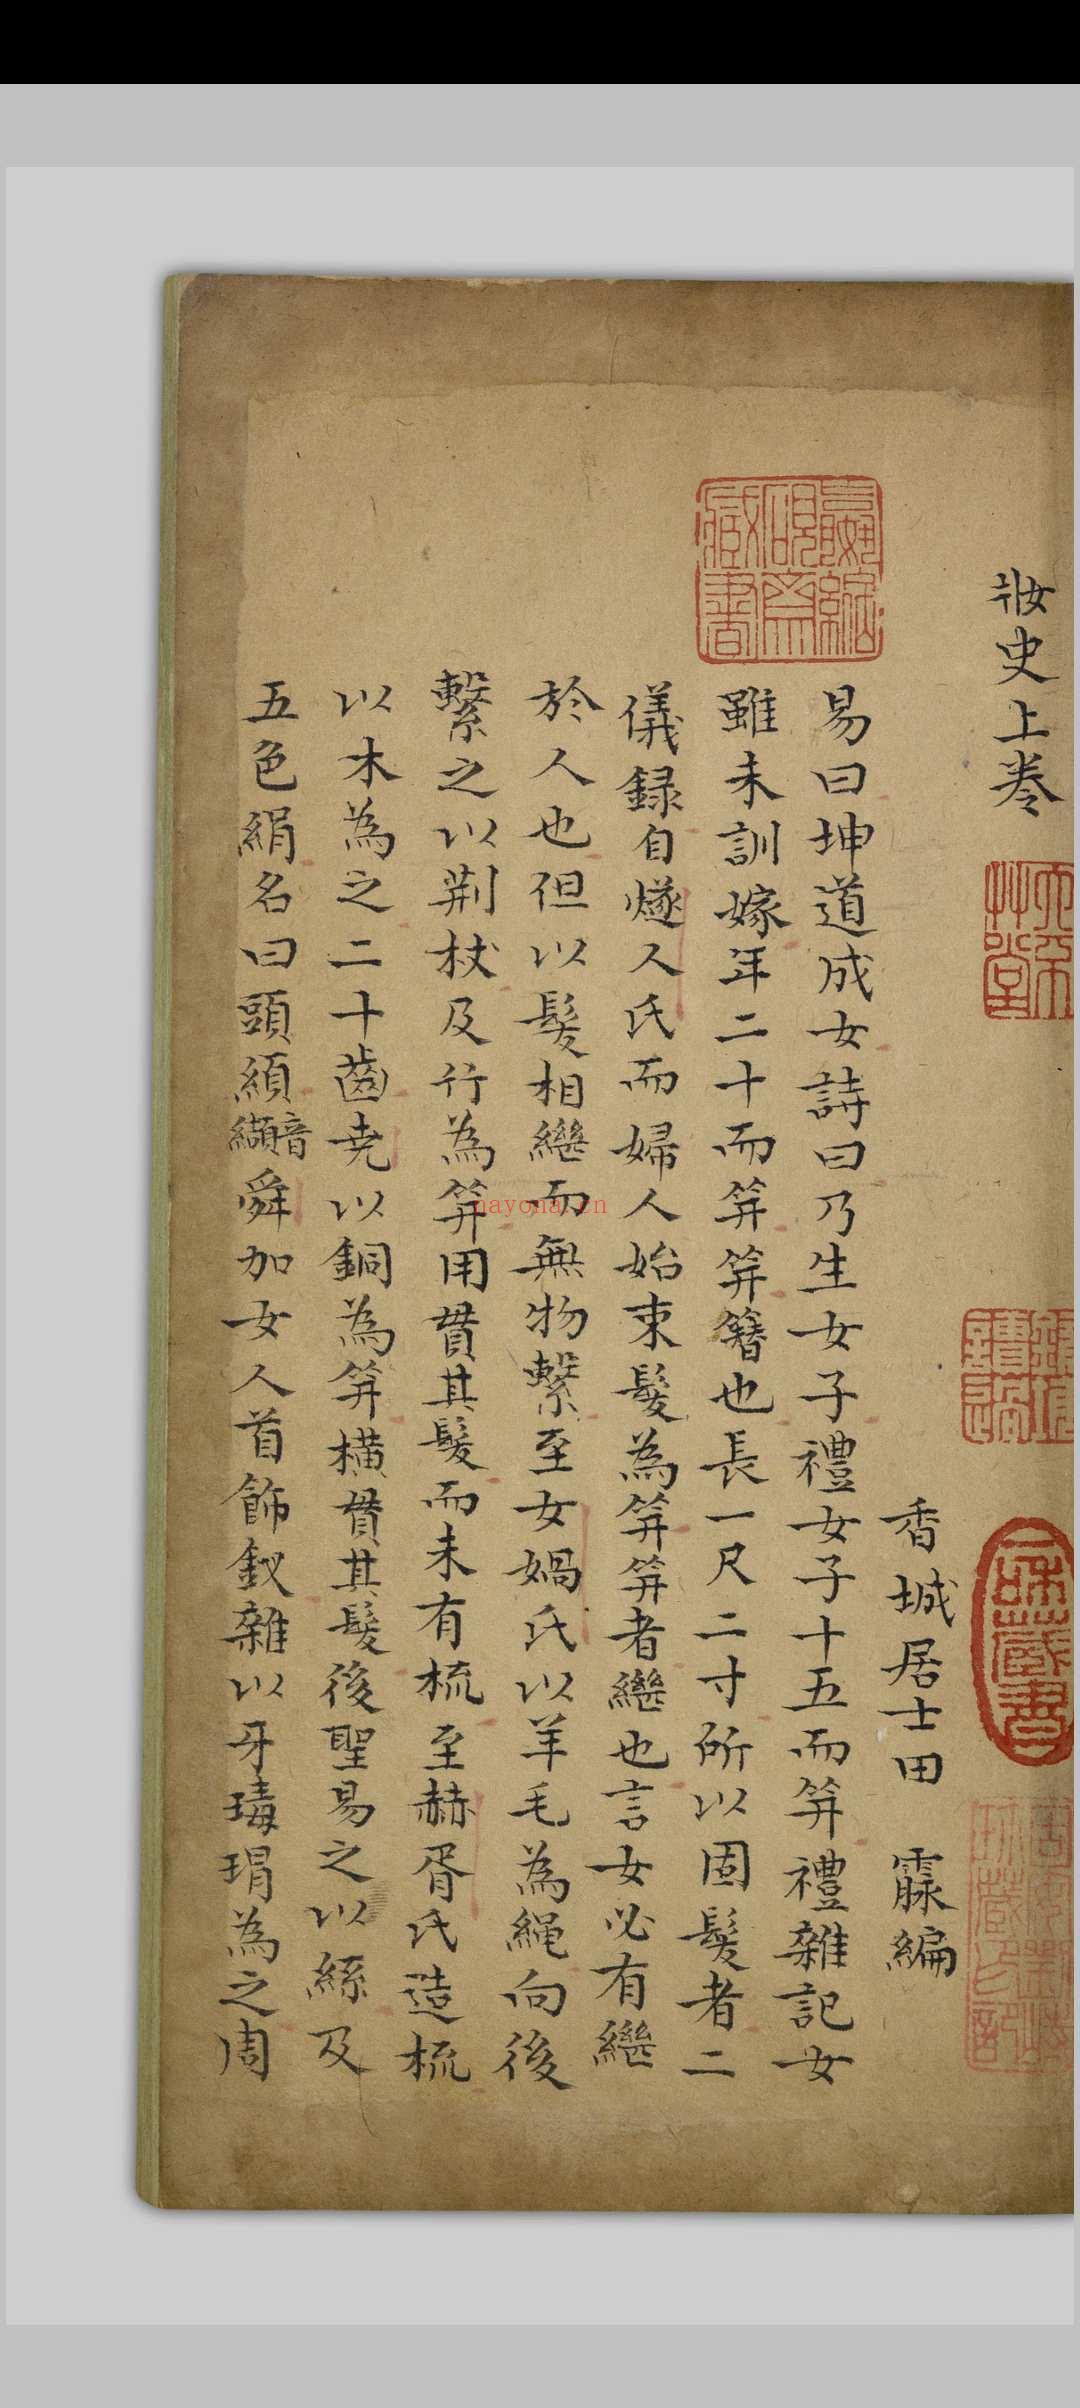 妝史上卷
香城居士田　霡編
易曰坤道成女詩曰乃生女子禮女子十五而笄禮雜記女
雖未訓嫁年二十而笄笄簪也長一尺二寸所以固髮者二
儀録自燧人氏而婦人始束髮為笄笄者繼也言女必有繼
於人也但以髮相繼而無物繫至女媧氏以羊毛為繩向後
繫之以荆杖及竹為笄用貫其髮而未有梳至赫胥氏造梳
以木為之二十齒堯以銅為笄橫貫其髮後聖易之以絲及
五色絹名曰頭䋶音纈舜加女人首飾釵雜以牙瑇瑁為之周
嬴縮硯齋藏書
nayona.cn